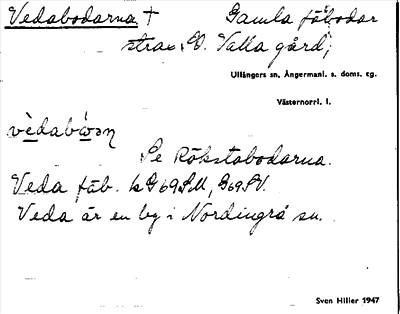 Vedabodarna † Gamla fäbodar
strax O. Valla gård;
Ullångers sn, Ångermanl. s. doms. tg.
Västernorrl. l.
Se Rökstabodarna.
Veda fäb. kG69SM, G69SV.
Veda är en by i Nordingrå sn.
Sven Hiller 1947